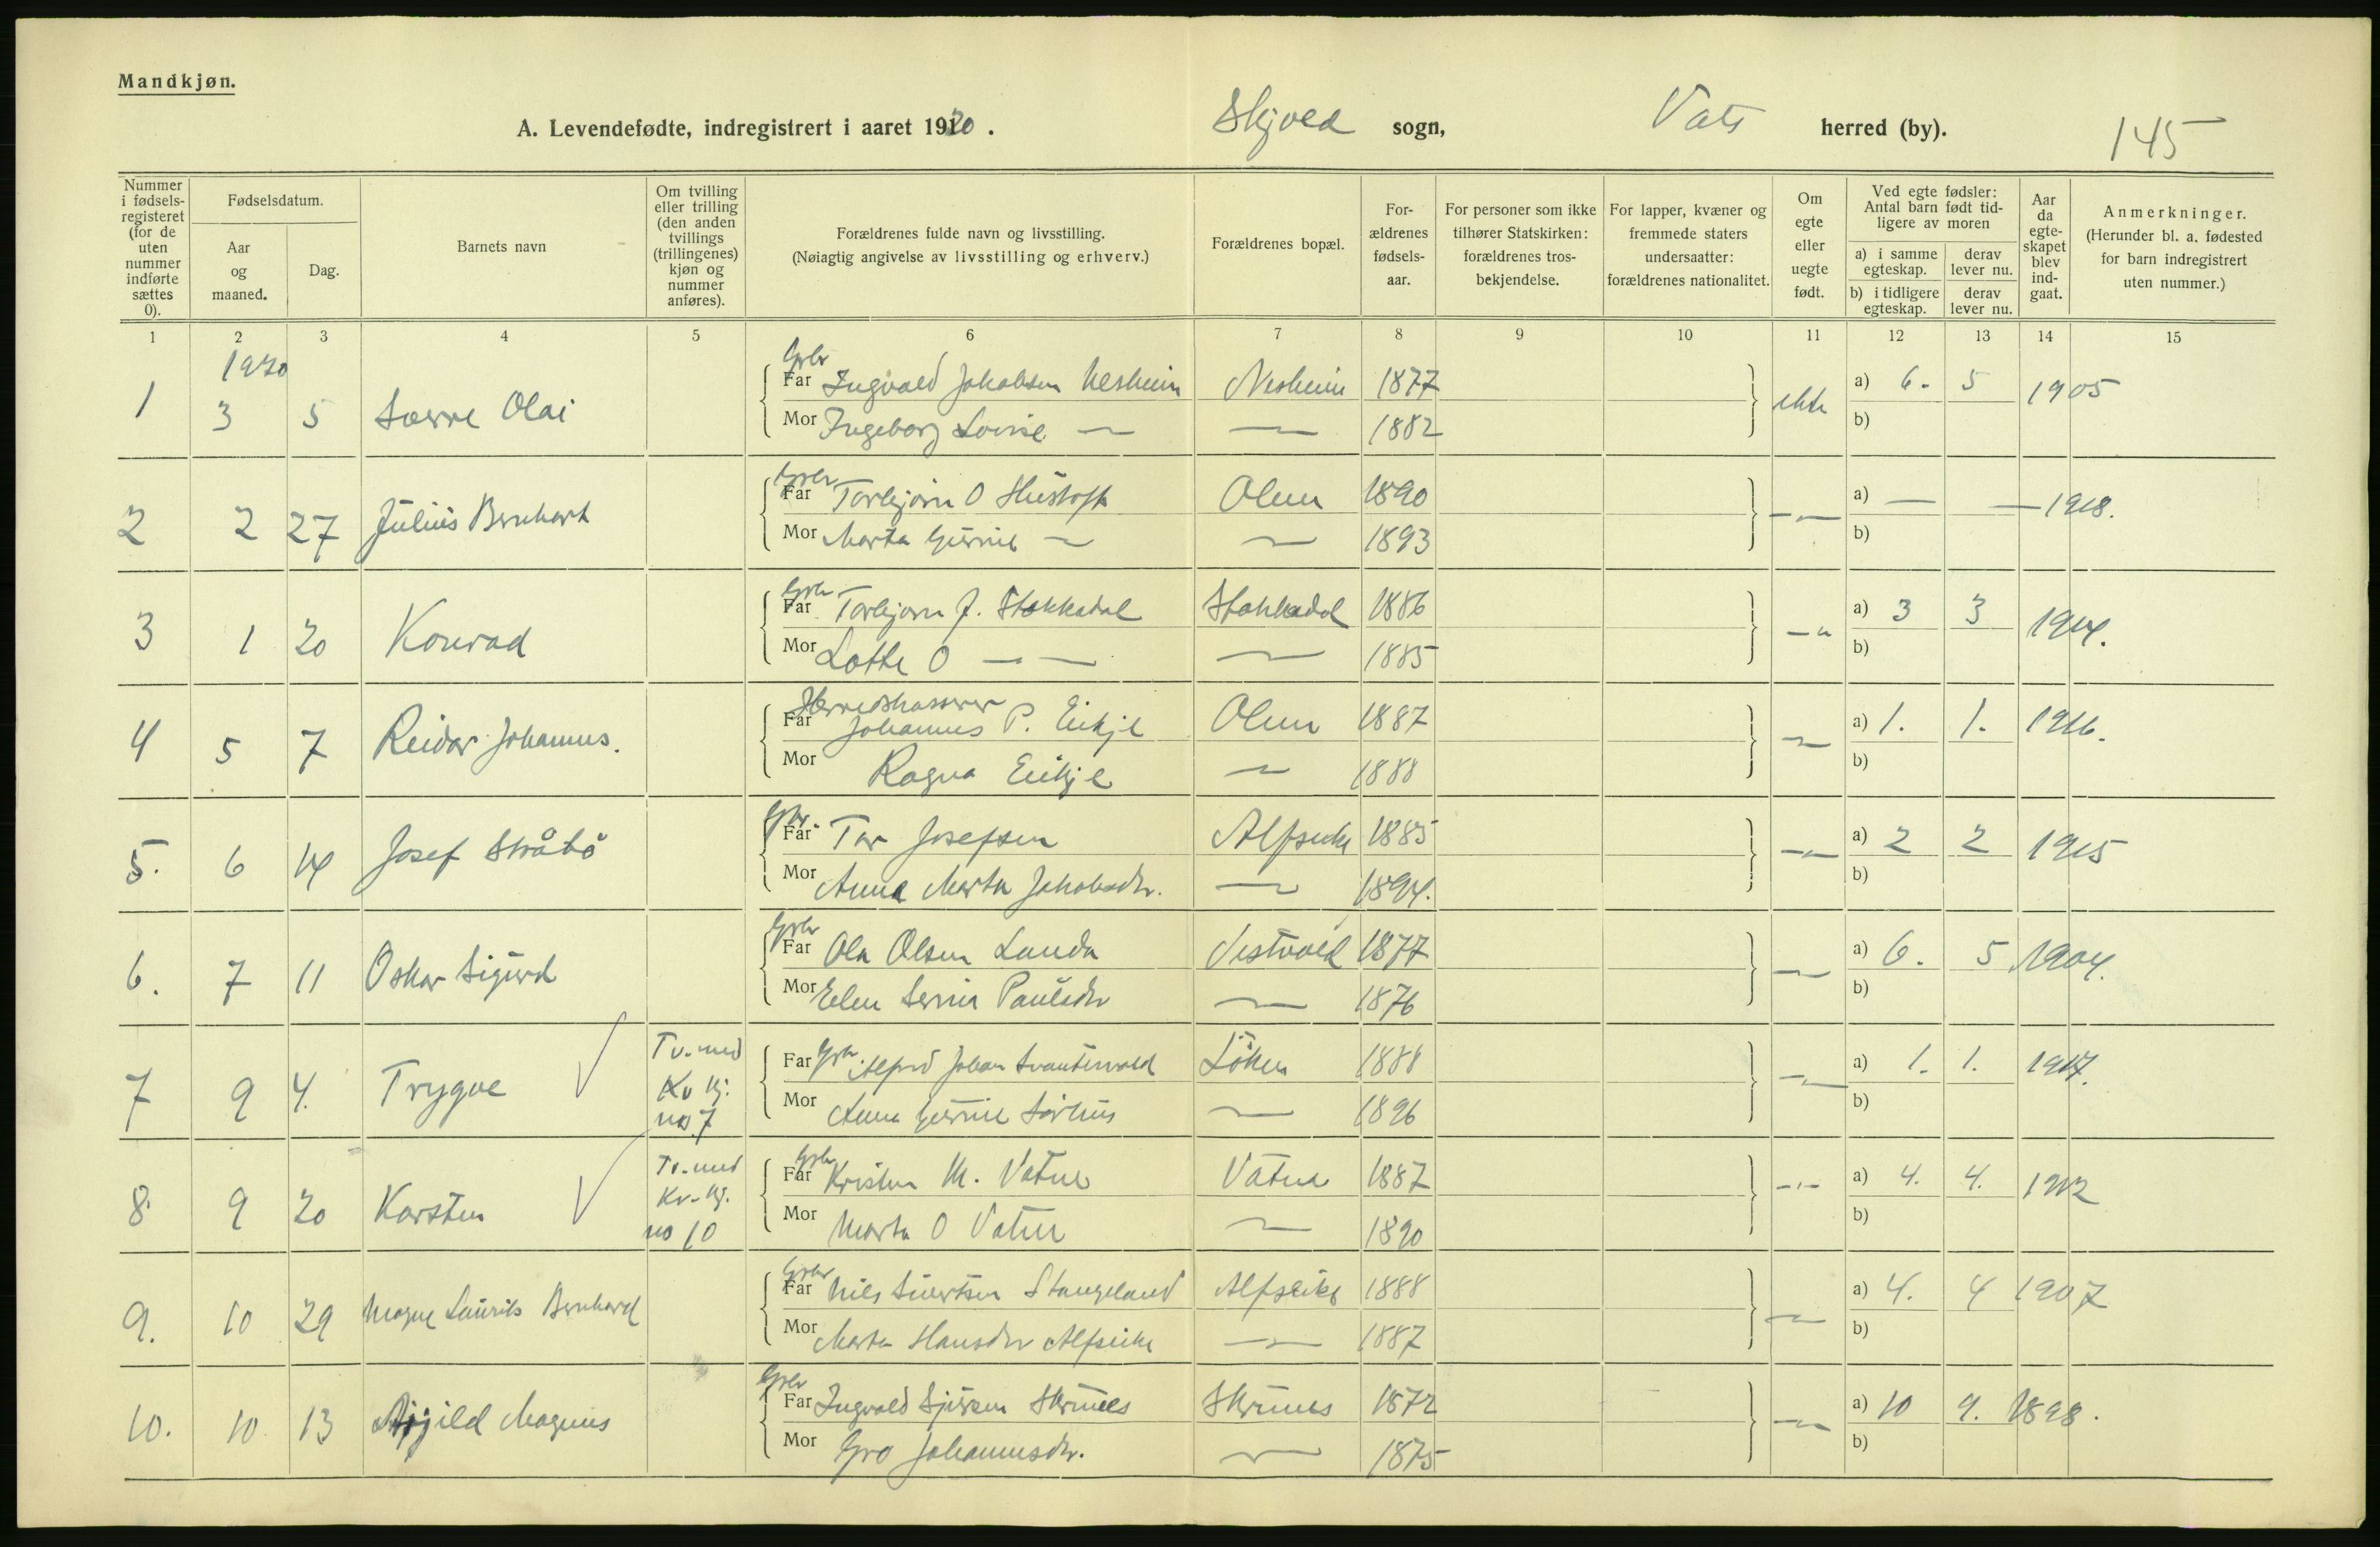 Mandkjøn.
A. Levendefødte, indregistrert i aaret 1920. Skjold sogn, Vats herred (by). 145
Nummer i fødsels-registeret (for de uten nummer indførte sættes 0).
Fødselsdatum.
Aar og maaned.
Dag.
Barnets navn
Om tvilling eller trilling (den anden tvillings (trillingenes) kjøn og nummer anføres).
Forældrenes fulde navn og livsstilling.
(Nøiagtig angivelse av livsstilling og erhverv.)
Forældrenes bopæl.
For-ældrenes fødsels-aar.
For personer som ikke tilhører Statskirken: forældrenes tros-bekjendelse.
For lapper, kvæner og fremmede staters undersaatter: forældrenes nationalitet.
Om egte eller uegte født.
Ved egte fødsler: Antal barn født tid-ligere av moren
a) i samme egteskap. derav lever nu.
b) i tidligere egteskap. derav lever nu.
Aar da egte-skapet blev ind-gaat.
Anmerkninger.
(Herunder bl. a. fødested for barn indregistrert uten nummer.)
1 2 3 4 5 6 7 8 9 10 11 12 13 14 15
1920
Grbr
1 3 5 Sverre Olai Far Ingvald Jakobsen Nesheim Nesheim 1877 ekte a) 6. 5 1905
Mor Ingeborg Lovise — — 1882 b)
Grbr
2 2 27 Julius Bernhart Far Torbjørn O Hustoft Ølen 1890 —"— a) — — 1918.
Mor Marta Gurine — — 1893 b)
Grbr
3 1 20 Konrad Far Torbjørn J. Stokkadal Stokkadal 1886 —" a) 3 3 1914.
Mor Lotte O — — — 1885 b)
Herredskasserer
4 5 7 Reidar Johannes. Far Johannes P. Eikje Ølen 1887 — a) 1. 1. 1916.
Mor Ragna Eikje — 1888 b)
Gbr.
5. 6 14 Josef Stråbø Far Tor Josefsen Alfseike 1885 —"— a) 2 2 1915
Mor Anna Marta Jakobsdtr. — 1894. b)
Grbr
6. 7 11 Oskar Sigurd Far Ola Olsen Landa Vestvold 1877 —"— a) 6. 5 1904.
Mor Elen Serina Paulsdtr — 1876 b)
7 9 4. Trygve Tv. med Kv kj. no 7 Far Gbr. Alfred Johan Svantesvold Løken 1888 —"— a) 1. 1. 1917.
Mor Anna Gurine Sørhus — 1896 b)
Grbr
8. 9 20 Karsten Tv. med Kv. kj. no 10 Far Kristen M. Vatne Vatne 1887 —"— a) 4. 4. 1912
Mor Marta O Vatne — 1890 b)
Grbr
9. 10 29 Magne Laurits Bernhard Far Nils Sivertsen Stangeland Alfseike 1888 —"— a) 4. 4 1907
Mor Marta Hansdtr Alfseike — 1887 b)
Grbr
10. 10 13 Magnus Far Ingvald Sjursen Skrunes Skrunes 1872 —"— a) 10 9. 1898.
Mor Gro Johannesdtr. — 1875 b)